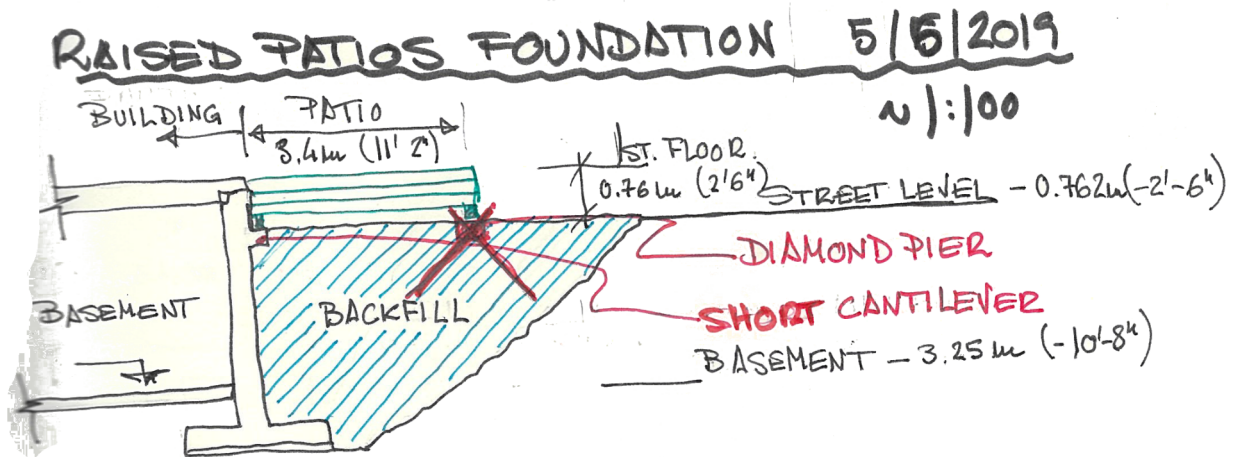 RAISED PATIOS FOUNDATION 5/5/2019
~ 1:100
BUILDING
PATIO
3.4m (11' 2")
1ST. FLOOR.
0.76m (2'6")
STREET LEVEL - 0.762m (-2'-6")
DIAMOND PIER
SHORT CANTILEVER
BASEMENT
BACKFILL
BASEMENT - 3.25m (-10'-8")